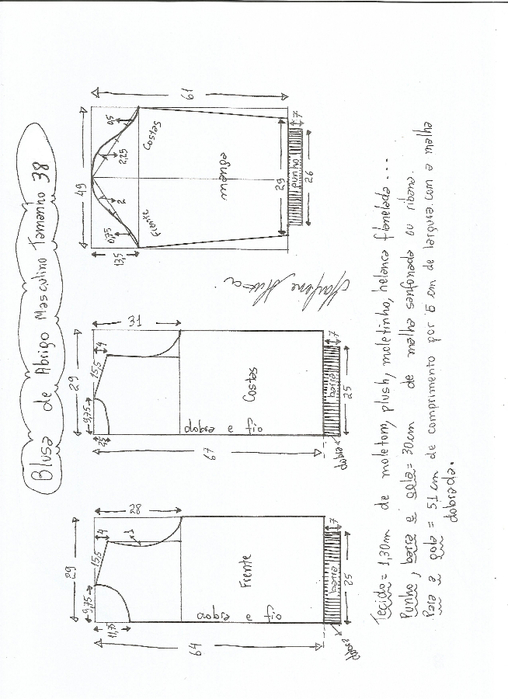 Blusa de Abrigo Masculino Tamanho 38
29
9,75
15,5
4
28
1
11,75
64
Frente
fio e dobra
barra
7
25
dobra
29
9,75
15,5
4
31
2,5
67
Costas
fio e dobra
barra
7
25
dobra
49
61
13,5
0,75
2
2,25
0,5
Frente
Costas
manga
29
punho
7
26
Tecido = 1,30m de moletom, plush, moletinho, helanca flanelada....
Punho, barra e gola = 30cm de malha sanfonada ou ribana.
Para a gola = 51cm de comprimento por 6 cm de largura com a malha
dobrada.